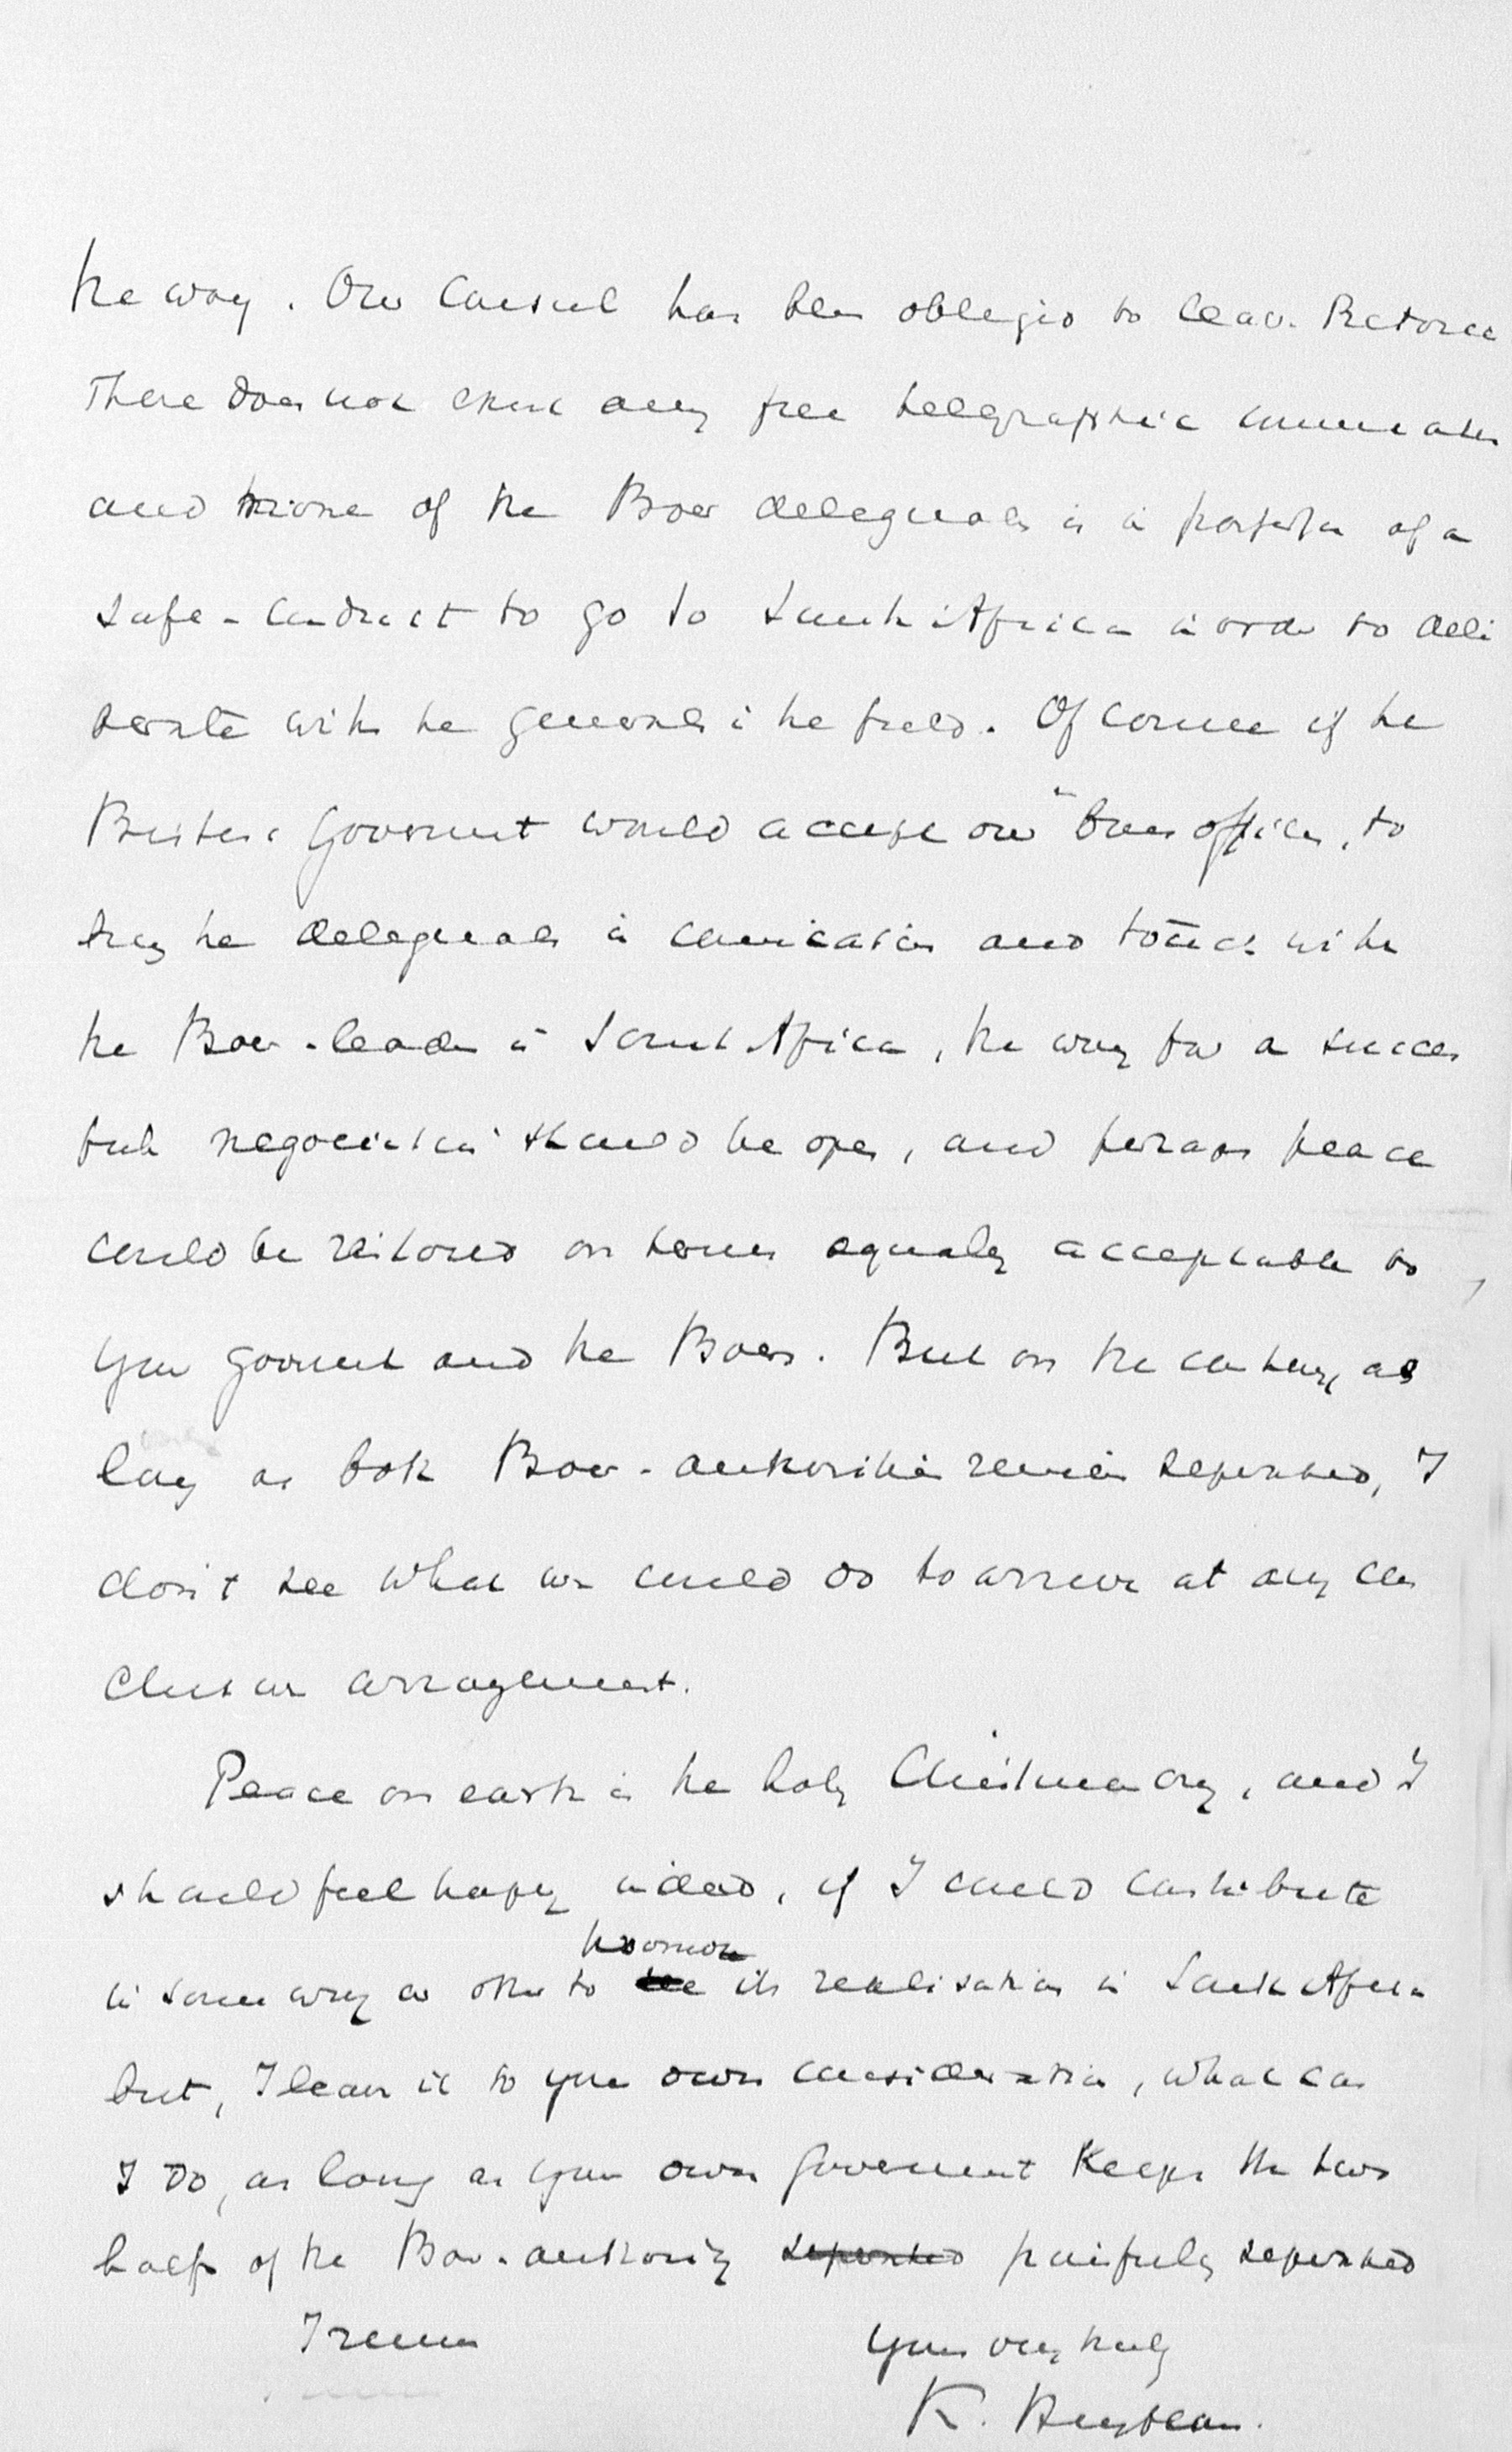 the way. Our Consul has been obliged to leave Pretoria
There does not exist any free telegraphic communication
and none of the Boer delegates is in possession of a
safe-conduct to go to South Africa in order to deli
berate with the generals in the field. Of course if the
British Government would accept our "bons offices, to
bring the delegates in communication and touch with
the Boer-leaders in South Africa, the way for a success
full negociation should be open, and perhaps peace
could be restored on terms equaly acceptable to
your government and the Boers. But on the contrary, as
long as both Boer-authorities remain separated, I
don't see what we could do to arrive at any con
clusive arrangement.
Peace on earth is the holy Christmas cry, and I
should feel happy indeed, if I could contribute
promote
in some way or other to its realisation in South Africa
but, I leave it to your own consideration, what can
I do, as long as your own government keeps the two
halfs of the Boer-authority separated painfully separated
I remain
Yours very truly
K.